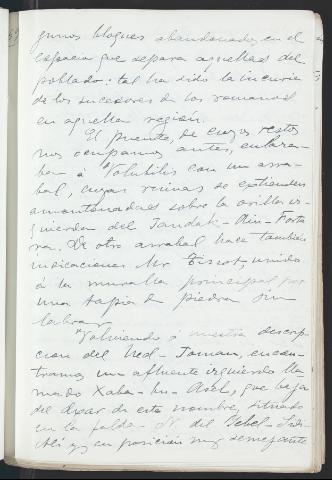 gunos bloques abandonados en el
espacio que separa aquellas del
poblado: tal ha sido la incuria
de los sucesores de los romanos
en aquella región.
El puente, de cuyos restos
nos ocupamos antes, enlaza-
ba á Volubilis con un arra-
bal, cuyas ruinas se extienden
amontonadas sobre la orilla iz-
quierda del
De otro arrabal hace también
indicaciones Mr Tissot, unido
á la muralla principal por
una tapia de piedras sin
labrar.
Volviendo á nuestra descrip-
cion del encon-
tramos un afluente izquierdo lla-
mado que baja
del de este nombre, situado
en la falda N. del
en posición muy semejante